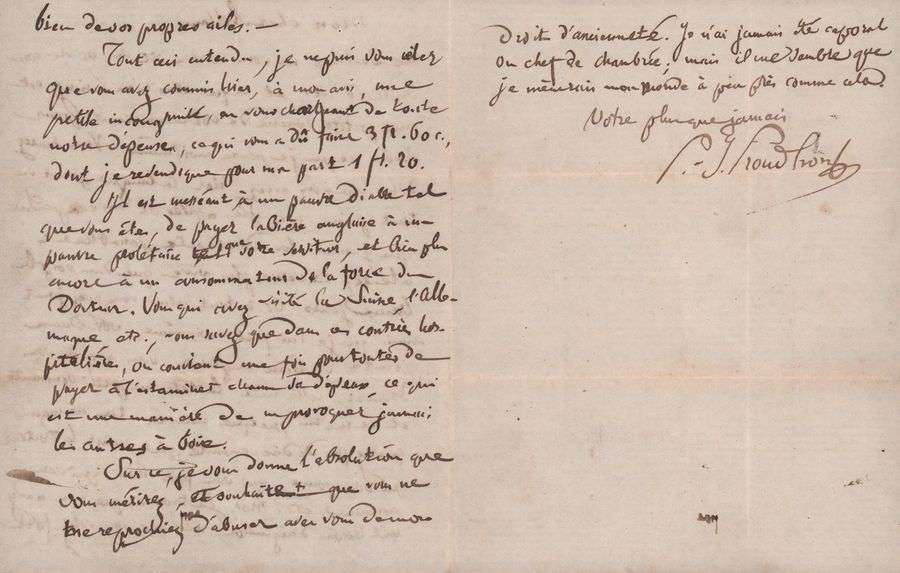 bien de vos propres ailes. —
Tout ceci entendu, je ne puis vous céler
que vous avez commis hier, à mon avis, une
petite incongruité, en vous chargeant de toute
notre dépense, ce qui vous a dû faire 3 fr. 60 c.,
dont je revendique pour ma part 1 fr. 20.
Il est messéant à un pauvre diable tel
que vous êtes, de payer la bière anglaise à un
pauvre prolétaire tel que votre serviteur, et bien plus
encore à un consommateur de la force du
Docteur. Vous qui avez visité la Suisse, l'Alle-
magne etc., vous savez que dans ces contrées hos-
pitalières, on convient une fois pour toutes de
payer à l'estaminet chacun sa dépense, ce qui
est une manière de ne provoquer jamais
les autres à boire.
Sur ce, je vous donne l'absolution que
vous méritez, et souhaite que vous ne
me reprochiez pas d'abuser avec vous de mon
droit d'ancienneté. Je n'ai jamais été caporal
ou chef de chambrée; mais il me semble que
je mènerais mon monde à peu près comme cela.
Votre plus que jamais
P.-J. Proudhon